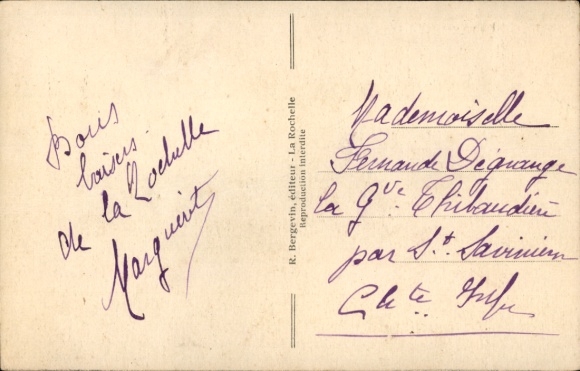 Bons
baisers
de la Rochelle
Marguerite
R. Bergevin, éditeur - La Rochelle
Reproduction interdite
Mademoiselle
Fernande Dégrange
la Gve Thibaudière
par St. Savinien
Chte Infre